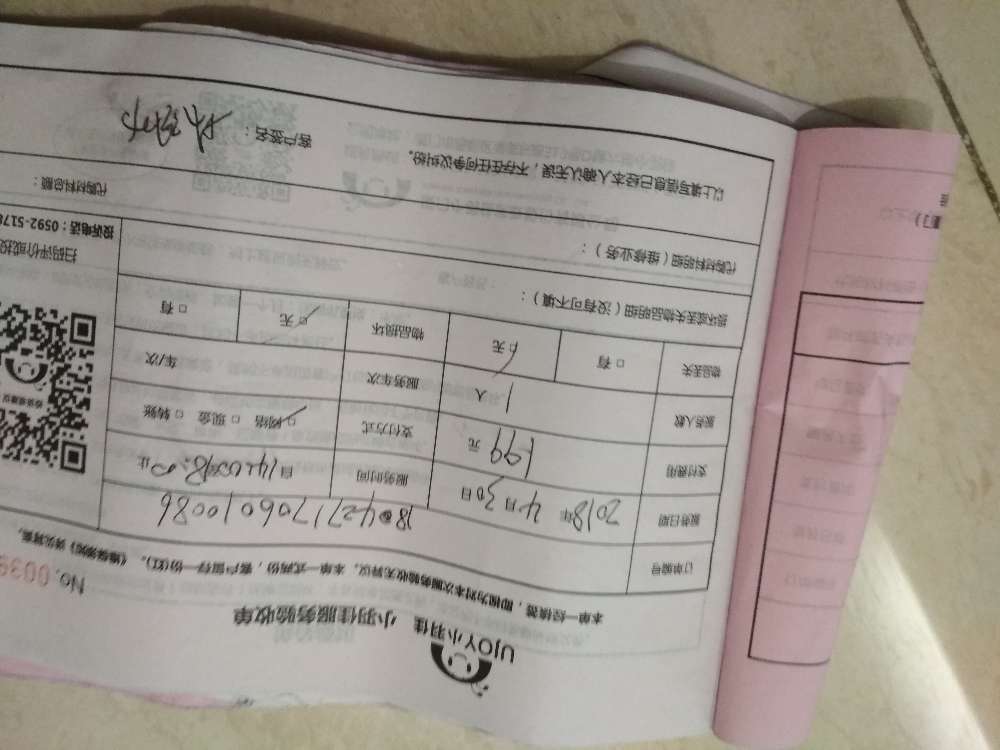 UJOY小羽佳 小羽佳服务验收单
No. 003
本单一经填写，即视为对本次服务验收无异议，本单一式两份，客户留存一份(红)。
订单编号 180427170601 0086
服务日期 2018年4月30日 服务时间 自14:00 止
支付费用 199元 支付方式 网络 □ 现金 □ 转账 □
服务人数 1人 服务车次 车/次
物品丢失 □ 有 □ 无 物品损坏 □ 无 □ 有
损坏或丢失物品明细（没有可不填）：
代购材料明细（维修业务）：
代购材料总额：
以上填写信息已经本人确认无误，不存在任何争议纠纷。
客户签名：
扫码评价或投
投诉电话：0592-5178